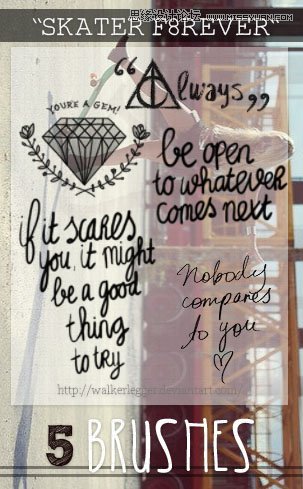 思缘设计论坛 WWW.MISSYUAN.COM
“SKATER F8REVER“
“Always„
YOU'RE A GEM!
be open
to whatever
comes next
if it scares
you, it might
be a good
thing
to try
Nobody
compares
to you
http://walkerlegger.deviantart.com/
5 BRUSHES